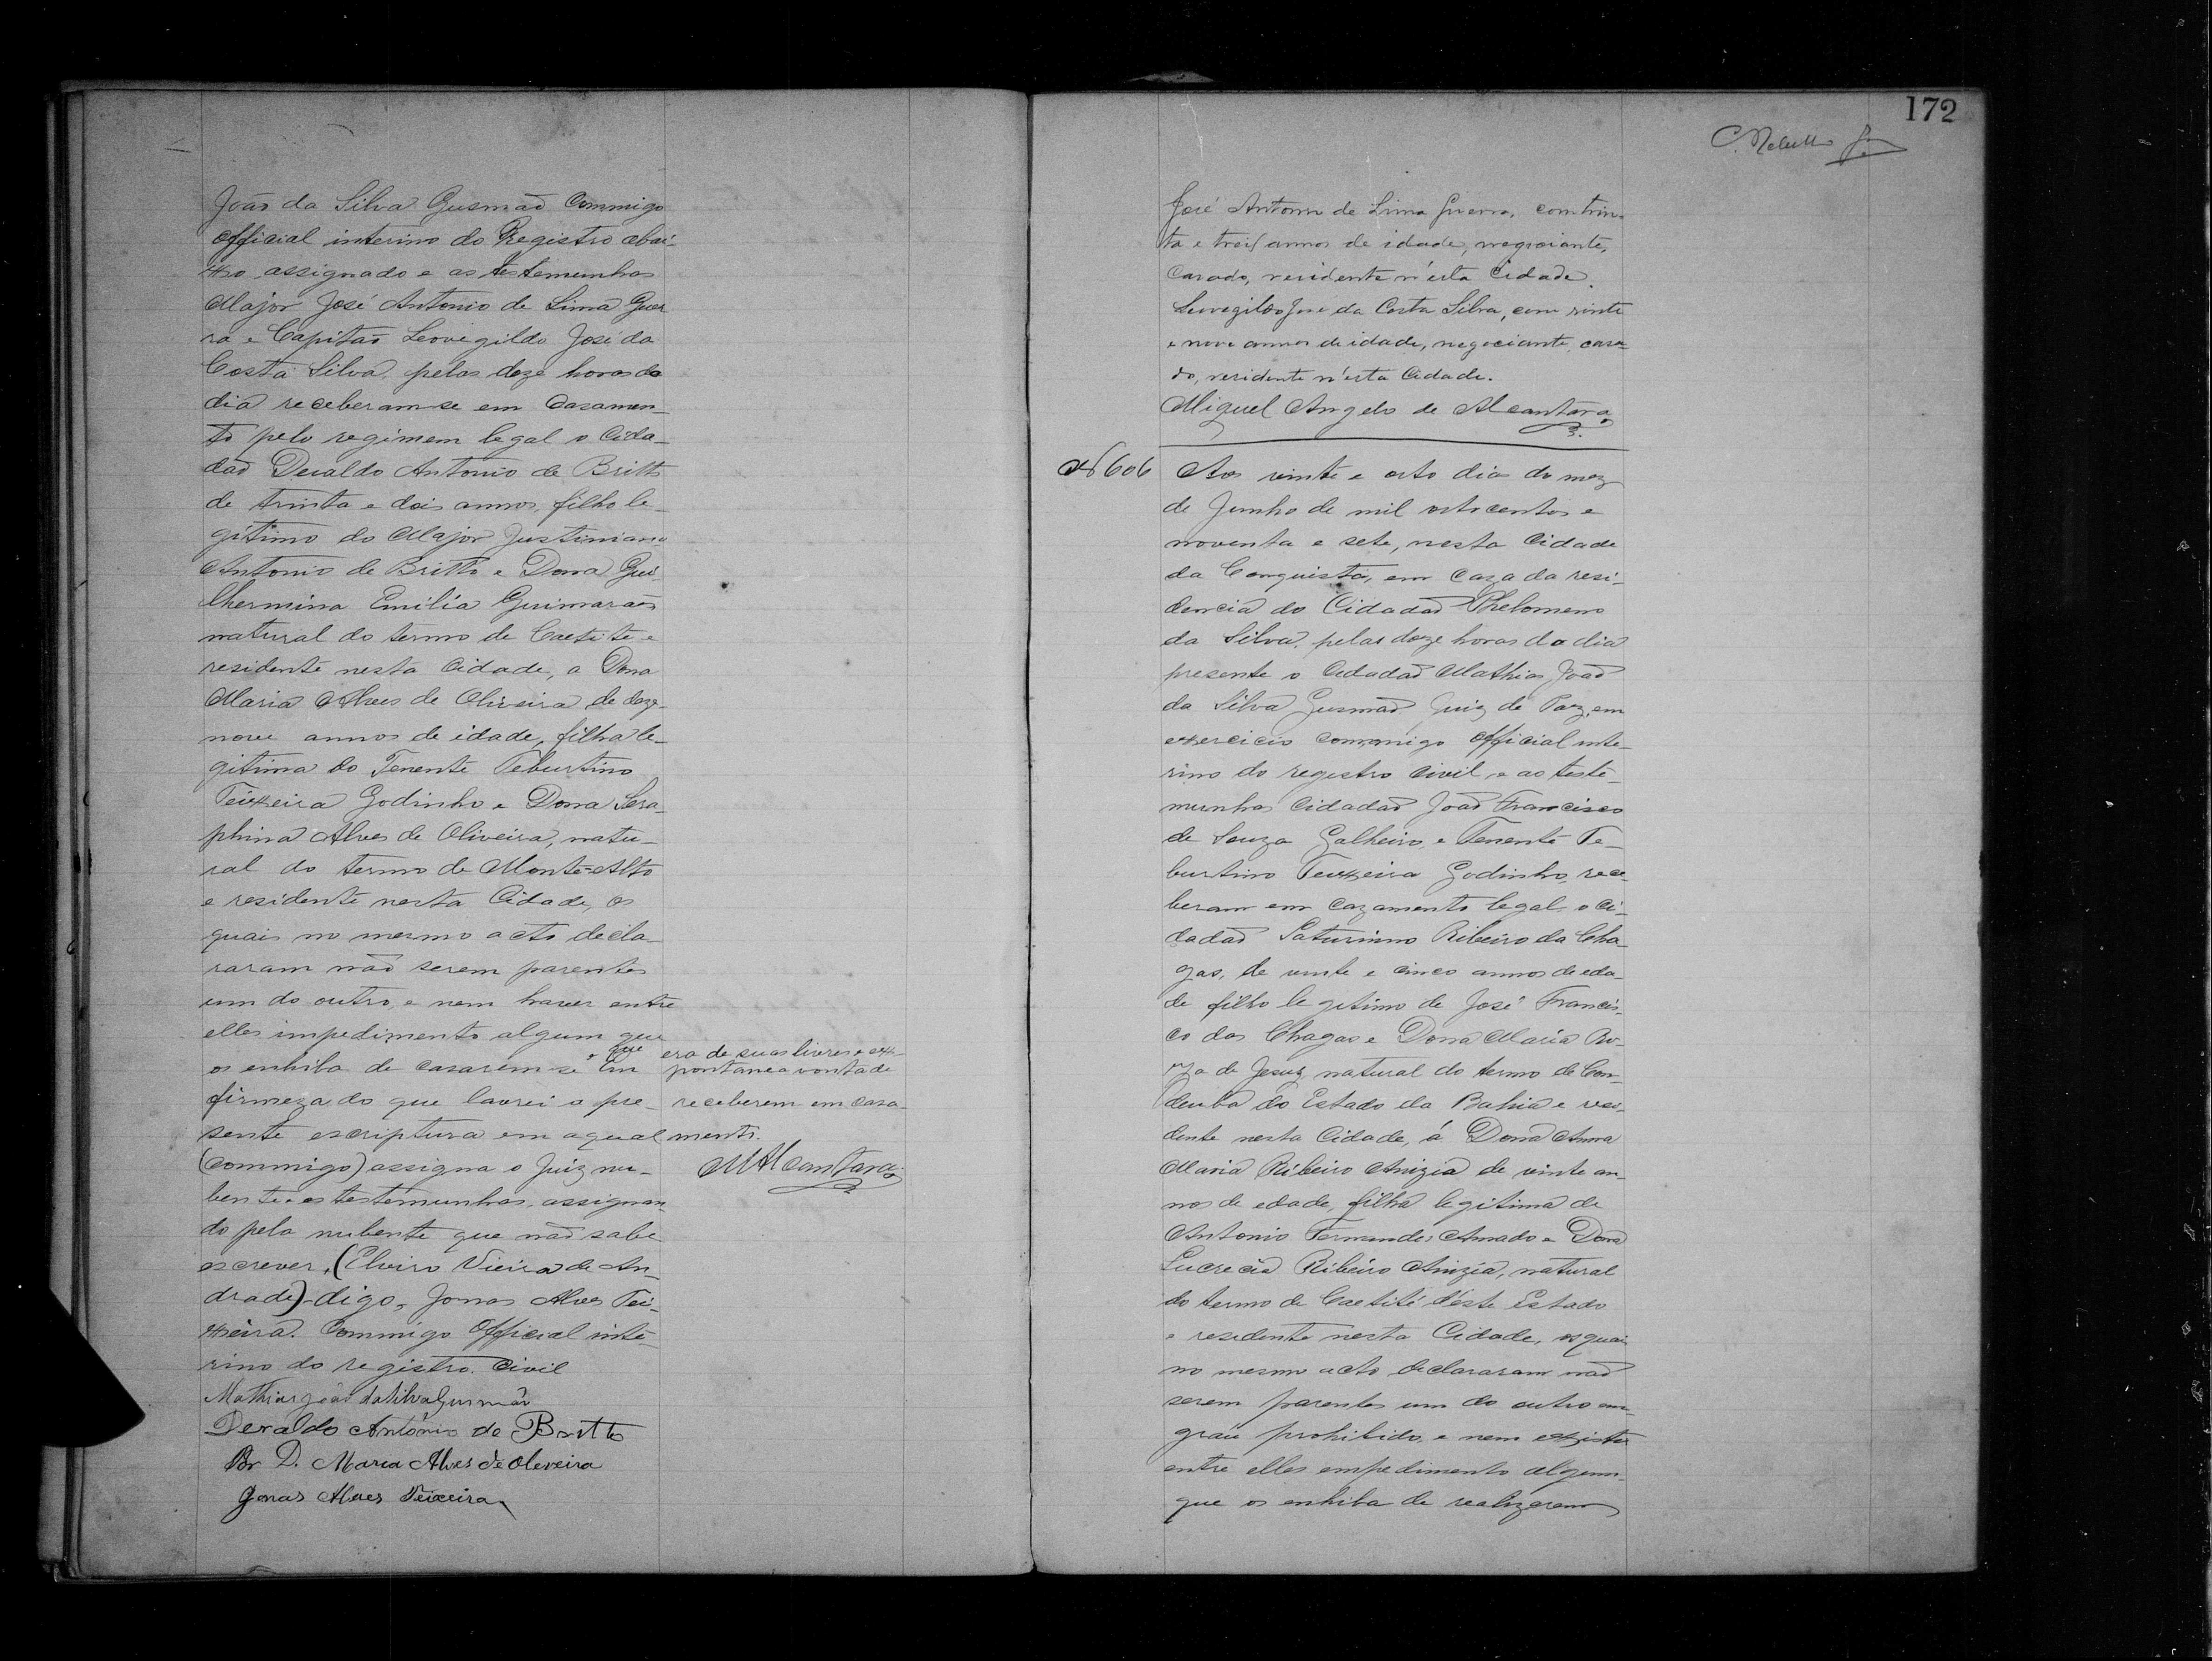 João da Silva Gusmaõ Commigo
official interino do Registro abai-
xo assignado e as testemunhas
Major José Antonio de Lima Guer
ra e Capitaõ Leovegildo José da
Costa Silva pelas doze horas do
dia receberam-se em Casamen-
to pelo regimem legal o Cida-
daõ Deraldo Antonio de Britto
de trinta e dois annos, filho le-
gitimo do Major Justiniano
Antonio de Britto e Dona Gui-
lhermina Emilia Guimaraẽs
natural do termo de Caetite e
residente nesta Cidade, a Dona
Maria Alves de Oliveira de deze-
nove annos de idade, filha le-
gitima do Tenente Teburtino
Teixeira Godinho e Dona Sera-
phina Alves de Oliveira, natu-
ral do termo de Monte-Alto
e residente nesta Cidade, os
quais no mesmo acto decla-
raram naõ serem parentes
um do outro, e nem haver entre
elles impedimento algum que
os enhiba de casarem-se e que era de suas livres e ex-
pontanea vontade
receberem em casa-
mento.
MAlcantara
Em
firmeza do que lavrei a pre-
sente escriptura em a qual
(commigo) assigna o Juiz nu-
bente e as testemunhas, assignan-
do pela nubente que naõ sabe
escrever, (Elviro Vieira de An-
drade)-digo, Jonas Alves Tei-
xeira. Commigo Official inte-
rino do registro Civil
Mathias João da Silva Gusmão
Deraldo Antonio de Britto
Por D. Maria Alves de Oleveira
Jonas Alves Teixeira
172
José Antonio de Lima Guerra, com trin-
ta e treis annos de idade, negociante,
Casado, residente n'esta Cidade.
Leovegildo José da Costa Silva, com vinte
e nove annos de idade, negociante, casa-
do, residente n'esta Cidade.
Miguel Angelo de Alcantara
Nº 606
Aos vinte e oito dia do mez
de Junho de mil oitocentos e
noventa e sete, nesta Cidade
da Conquista, em caza da resi-
dencia do Cidadaõ Phelomeno
da Silva, pelas doze horas do dia
presente o Cidadaõ Mathias Joaõ
da Silva Gusmaõ Juiz de Paz, em
exercicio commigo official inte-
rino do registro civil, e as teste-
munhas Cidadaõ Joaõ Francisco
de Souza Galheiro, e Tenente Te-
burtino Teixeira Godinho, rece-
beram em cazamento legal, o Ci-
dadaõ Saturnino Ribeiro da Cha-
gas, de vinte e cinco annos de eda-
de filho legitimo de José Francis-
co das Chagas e Dona Maria Ro-
za de Jesuz natural do termo de Con-
deuba do Estado da Bahia e resi-
dente nesta Cidade, á Dona Anna
Maria Ribeiro Anizia de vinte an-
nos de edade, filha legitima de
Antonio Fernandes Amado e Dona
Lucrecia Ribeiro Anizia, natural
do termo de Caetité d'este Estado
e residente nesta Cidade, os quais
no mesmo acto declararam naõ
serem parentes um do outro em
grau prohibido, e nem existir
entre elles empedimento algum
que os enhiba de realizarem